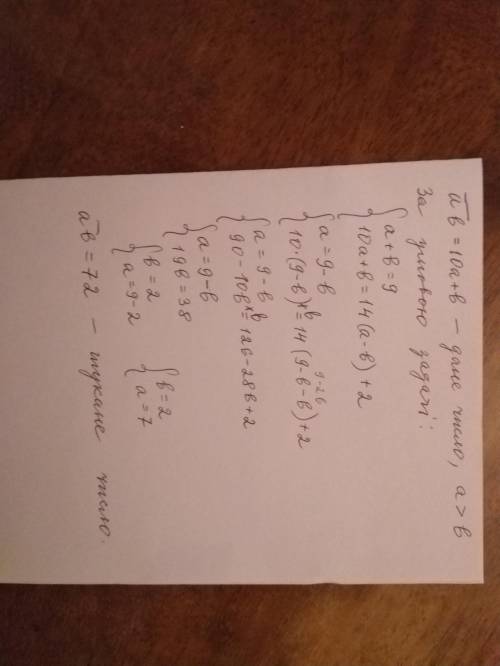 ab̅ = 10a+b – дане число, a > b
За умовою задачі:
{ a + b = 9
{ 10a + b = 14(a - b) + 2
{ a = 9 - b
{ 10·(9-b)+b = 14(9-b-b)+2
9-2b
{ a = 9 - b
{ 90 - 10b+b = 126 - 28b + 2
{ a = 9 - b
{ 19b = 38
{ b = 2 { b = 2
{ a = 9 - 2 { a = 7
ab̅ = 72 – шукане число.